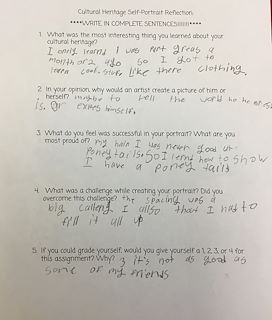 Cultural Heritage Self-Portrait Reflection
****WRITE IN COMPLETE SENTENCES!!!!!!!****
1. What was the most interesting thing you learned about your
cultural heritage?
I only learnd I was part greas a
month or 2 ago so I got to
leern cool stuff like there clothing.
2. In your opinion, why would an artist create a picture of him or
herself? maybe to tell the world ho he or she
is. Or exspres himself.
3. What do you feel was successful in your portrait? What are you
most proud of? my hair I was never good at
poneytails. So I lernd how to show
I have a poney tail
4. What was a challenge while creating your portrait? Did you
overcome this challenge? the spacing was a
big calleng I allso that I had to
fill it all up
5. If you could grade yourself, would you give yourself a 1, 2, 3, or 4 for
this assignment? Why? 3 it's not as good as
some of my friends